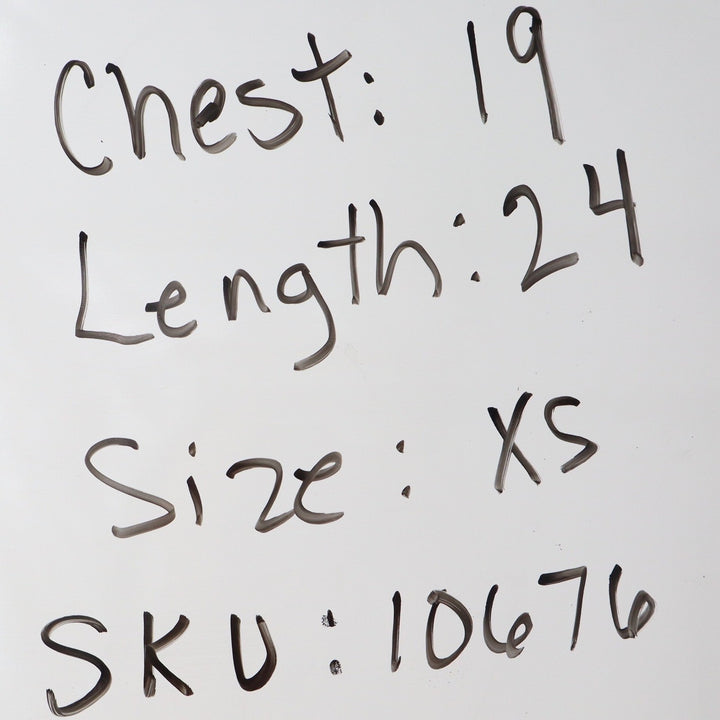 Chest: 19
Length: 24
Size: XS
SKU: 10676